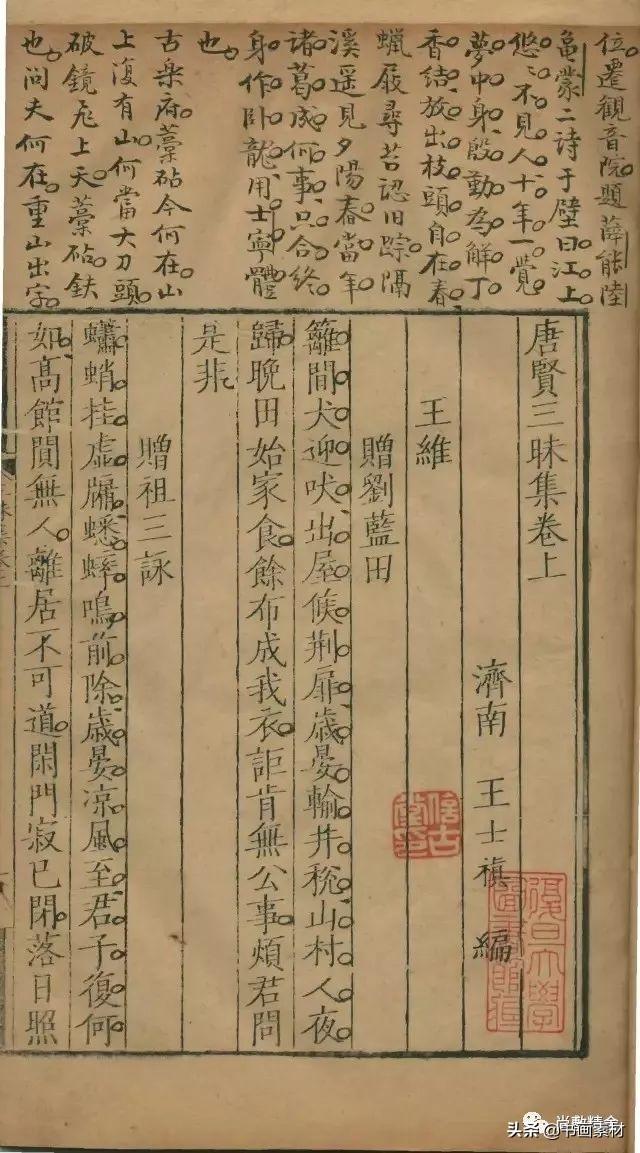 位遷觀音院題薛能陸
龜蒙二詩于壁曰江上
悠悠不見人十年一覺
夢中身殷勤為解丁
香結放出枝頭自在春
蠟屐尋苔認旧踪隔
溪遥見夕陽春當年
諸葛成何事只合終
身作卧龍用士寧體
也
古樂府藁砧今何在山
上復有山何當大刀頭
破鏡飛上天藁砧鈇
也問夫何在重山出字
唐賢三昧集卷上
濟南 王士禛 編
王維
贈劉藍田
籬間犬迎吠出屋候荆扉歳晏輸井稅山村人夜
歸晚田始家食餘布成我衣詎肯無公事煩君問
是非
贈祖三詠
蠨蛸挂虚牖蟋蟀鳴前除歳晏凉風至君子復何
如高館閴無人離居不可道閑門寂已閉落日照
信古
復旦大學
圖書館藏
尚敷精舍
头条@书画素材